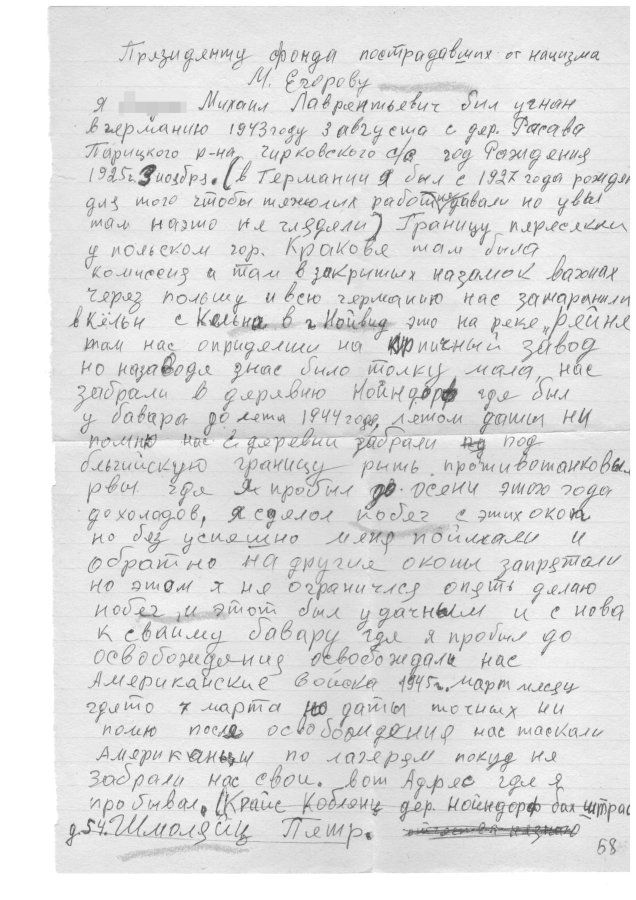 Президенту фонда пострадавших от нацизма
М. Егорову
Я Михаил Лаврентьевич был угнан
в германию 1943 году 3 августа с дер. Расава
Парицкого р-на, чирковского с/с год Рождения
1925г. 3 ноября. (в Германии я был с 1927 года рожден
для того чтобы тяжолих работ не давали но увы
там наэто ня глядели) Границу пярсекли
у польском гор. Кракове там была
комиссия и там в закритых назамок вагонах
черяз польшу и всю германию нас
в Кёльн с Кельна в г. Нойвид это на реке „Рейне
там нас опридялили на кирпичный завод
но назаводя знас било толку мала, нас
забрали в деревню Нойндорф где был
у бавара до лета 1944 года, летом даты ни
помню нас с деревни забрали под
бльгийскую границу рыть противотанковые
рвы. где я пробыл до осени этого года
до холодов, я сделал побег с этих окоп
но без успяшно меня поймали и
обратно на другия окопы запрятали
но этом я ня ограничлся опять делаю
побег, и этот был удачным и с нова
к сваиму бавару где я пробыл до
освобождения освобождали нас
Американские войска 1945г. март месяц
гдето 7 марта но даты точных ни
помю после освобождения нас таскали
Американцы по лагерям покуд ня
забрали нас свои. вот Адряс где я
пробывал, (Крайс Кобленц дер. Нойндорф бах штрас
д 54. Шмоляйц Пятр.
68